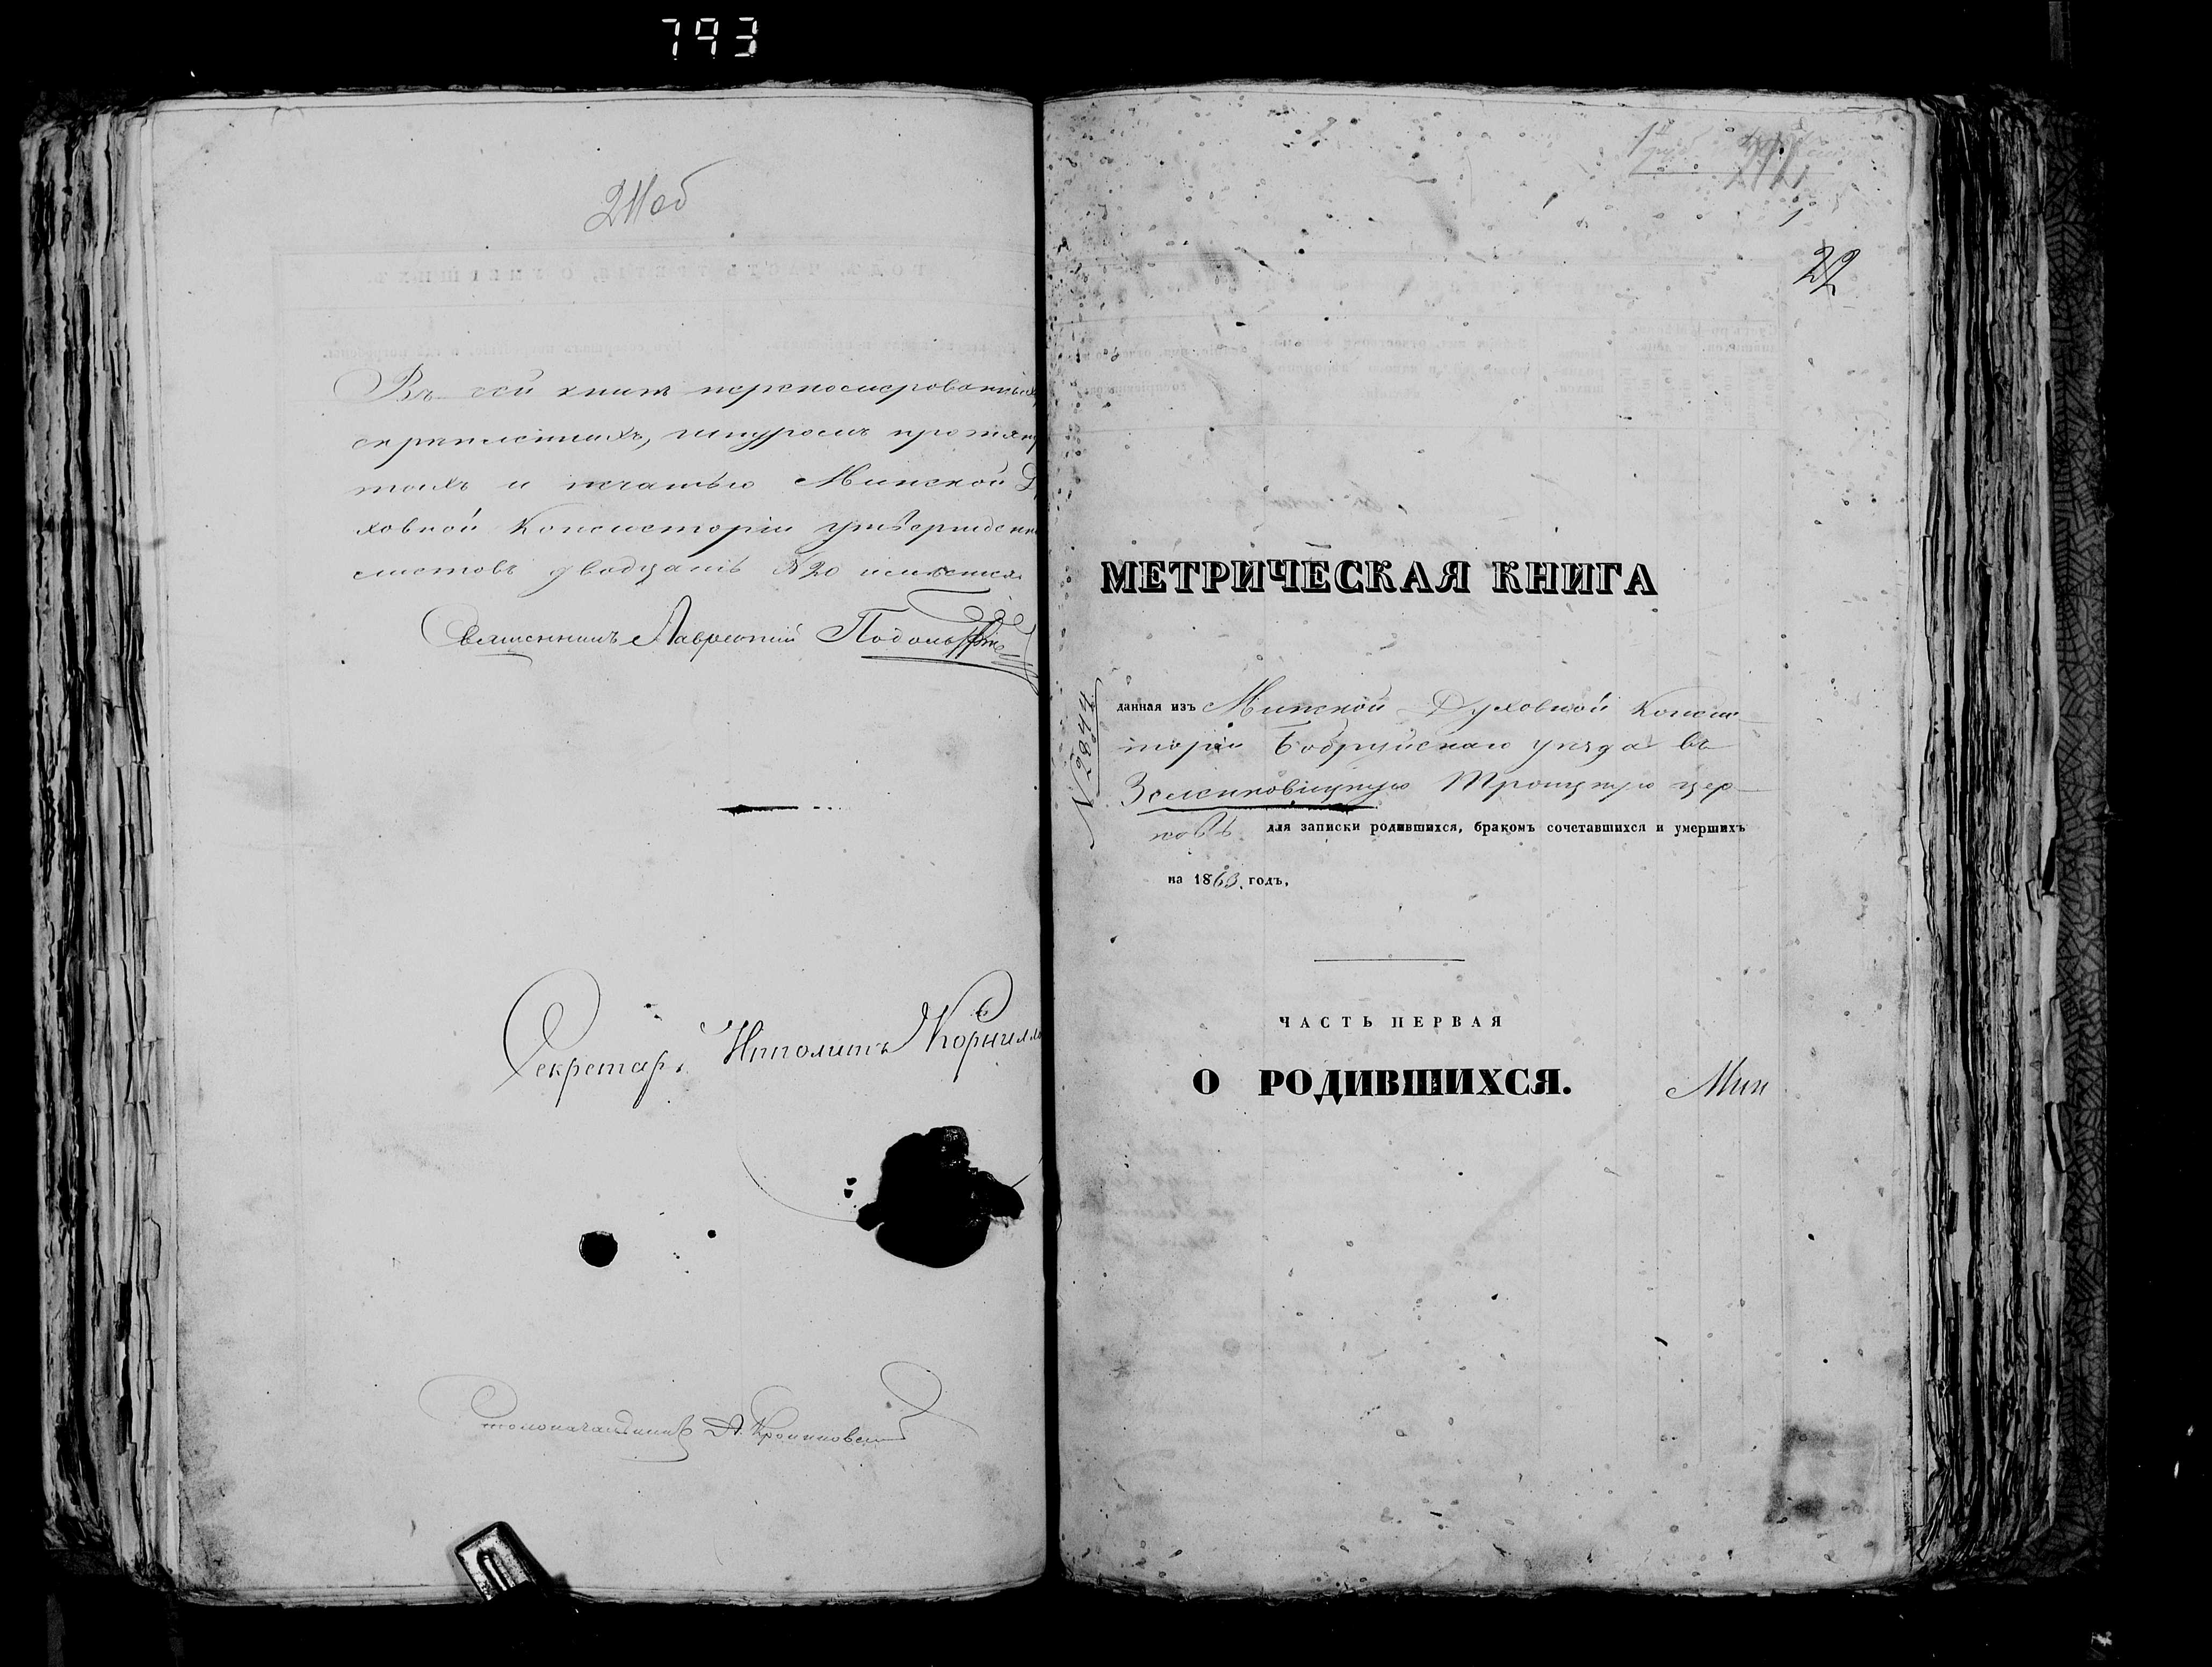 793
211об
Въ сей книгѣ переномерованныхъ
скрѣпленныхъ, шнуромъ протяну
тыхъ и печатью Минской Ду
ховной Консисторіи утвержденны
листовъ двадцать №20 имѣется
Священникъ Лаврентій
Секретарь Ипполитъ Корнилло
Столоначальникъ А.
212
1
22
МЕТРИЧЕСКАЯ КНИГА
N 2844
данная изъ Минской Духовной Конси
сторіи Бобруйскаго уѣзда въ
Зеленковицкую Троицкую цер
ковь для записки родившихся, бракомъ сочетавшихся и умершихъ
на 1863. годъ.
ЧАСТЬ ПЕРВАЯ
О РОДИВШИХСЯ. Мин